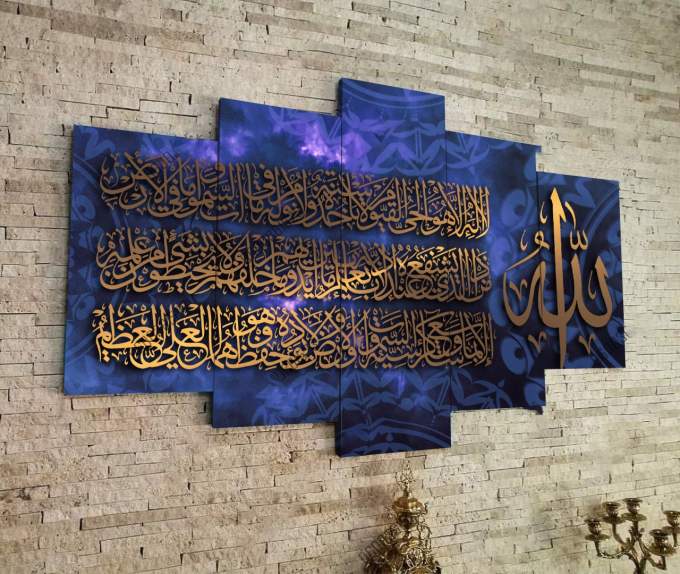 الله
لا اله الا هو الحي القيوم لا تأخذه سنة ولا نوم له ما في السموات وما في الارض
من ذا الذي يشفع عنده الا باذنه يعلم ما بين ايديهم وما خلفهم ولا يحيطون بشيء من علمه
الا بما شاء وسع كرسيه السموات والارض ولا يؤده حفظهما وهو العلي العظيم